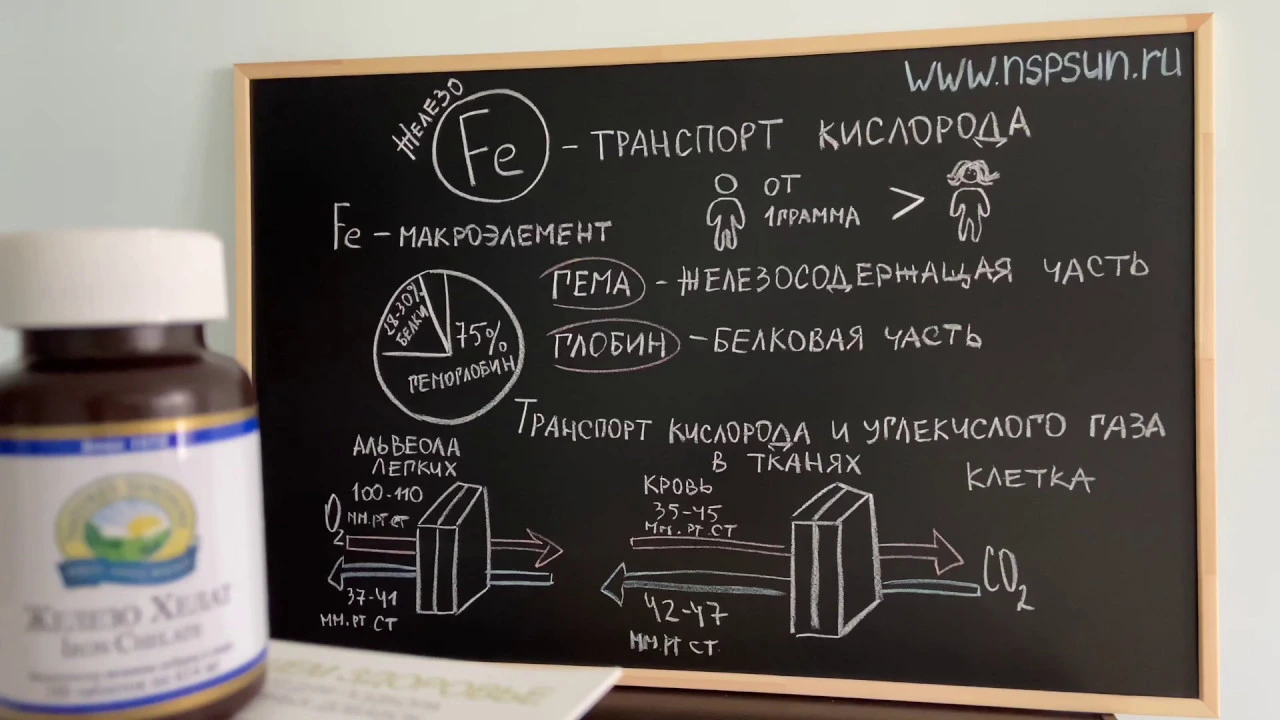 www.nspsun.ru
ЖЕЛЕЗО
Fe - ТРАНСПОРТ КИСЛОРОДА
ОТ
1 ГРАММА >
Fe - МАКРОЭЛЕМЕНТ
ГЕМА - ЖЕЛЕЗОСОДЕРЖАЩАЯ ЧАСТЬ
28-30%
БЕЛКИ
75%
ГЕМОГЛОБИН
ГЛОБИН - БЕЛКОВАЯ ЧАСТЬ
ТРАНСПОРТ КИСЛОРОДА И УГЛЕКИСЛОГО ГАЗА
В ТКАНЯХ
АЛЬВЕОЛА
ЛЕГКИХ
100-110
ММ.РТ СТ
O2
37-41
ММ.РТ СТ
КРОВЬ
35-45
ММ.РТ.СТ
42-47
ММ.РТ СТ.
КЛЕТКА
CO2
ЖЕЛЕЗО ХЕЛАТ
IRON CHELATE